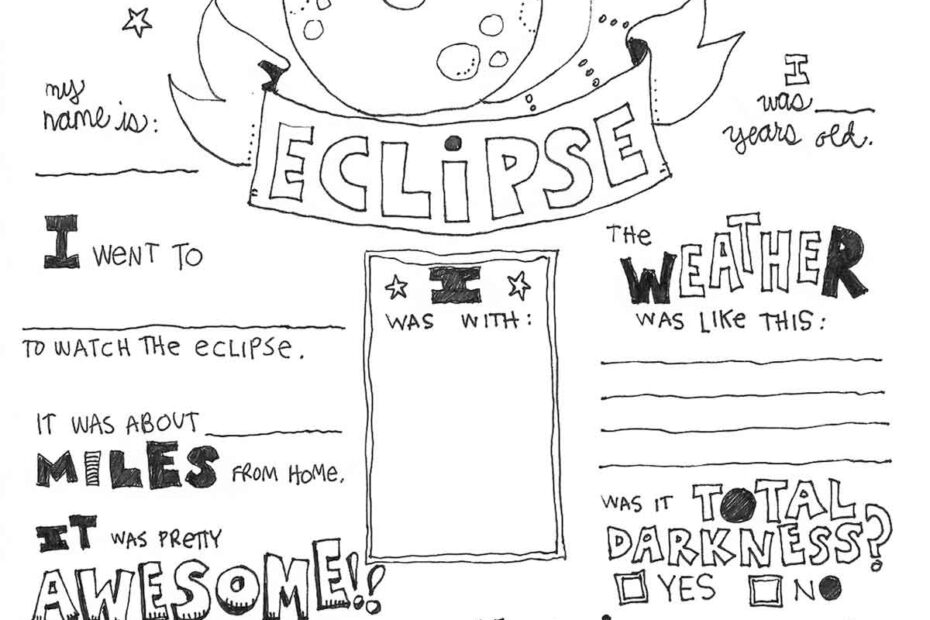 my
name is:
ECLiPSE
I
was
years old.
I WENT TO
TO WATCH THE ECLIPSE.
IT WAS ABOUT
MILES FROM HOME.
IT WAS PRETTY
AWESOME!!
I
WAS WITH:
THE
WEATHER
WAS LIKE THIS:
WAS IT TOTAL
DARKNESS?
YES NO